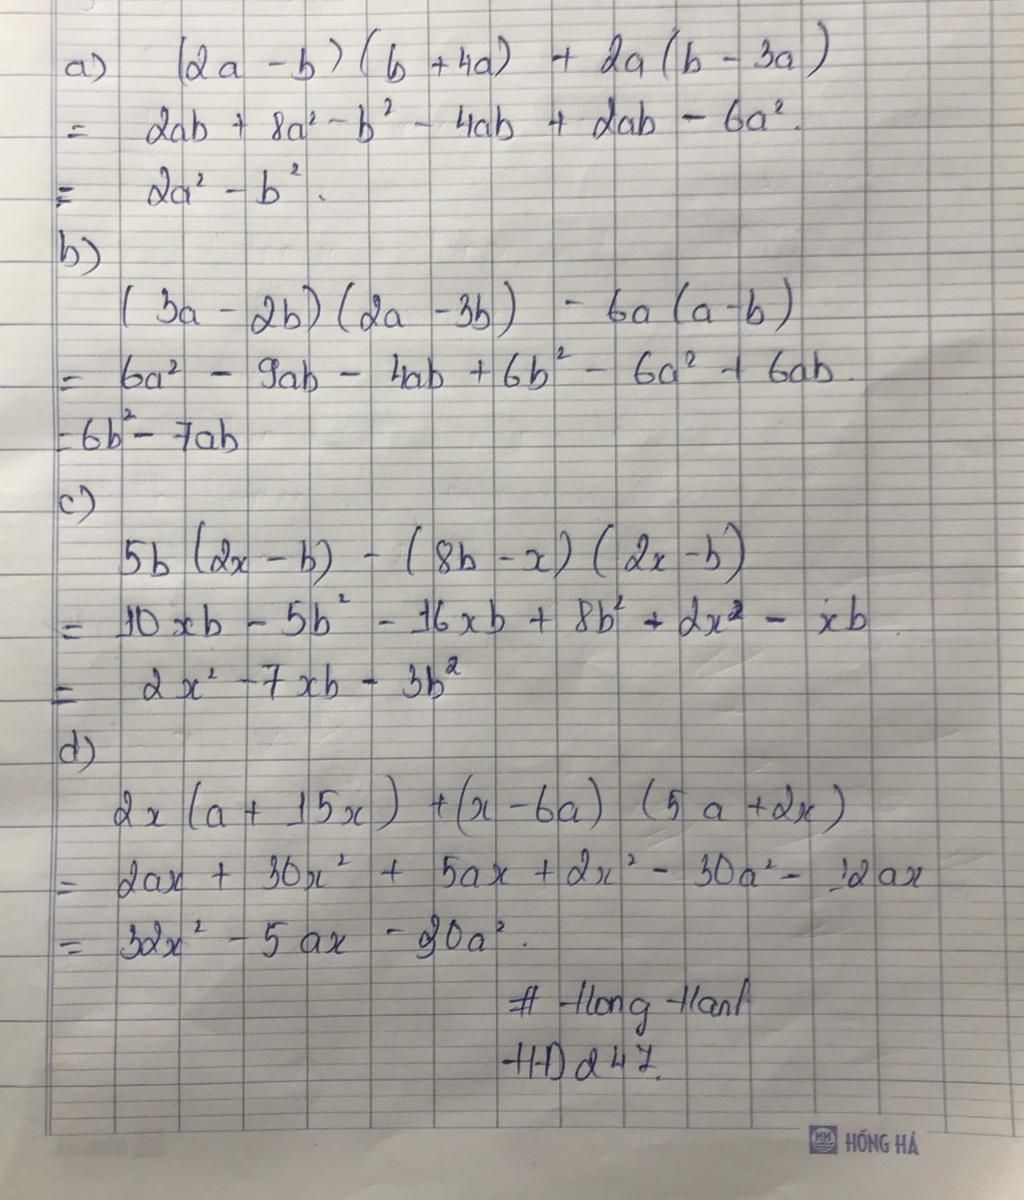 a) (2a - b)(b + 4a) + 2a(b - 3a)
= 2ab + 8a² - b² - 4ab + 2ab - 6a².
= 2a² - b².
b)
(3a - 2b)(2a - 3b) - 6a(a - b)
= 6a² - 9ab - 4ab + 6b² - 6a² + 6ab.
= 6b² - 7ab
c)
5b(2x - b) - (8b - x)(2x - b)
= 10xb - 5b² - 16xb + 8b² + 2x² - xb
= 2x² - 7xb - 3b²
d)
2x(a + 15x) + (x - 6a)(5a + 2x)
= 2ax + 30x² + 5ax + 2x² - 30a² - 12ax
= 32x² - 5ax - 30a².
# Hong Hanh
HD247.
HH HỒNG HÀ